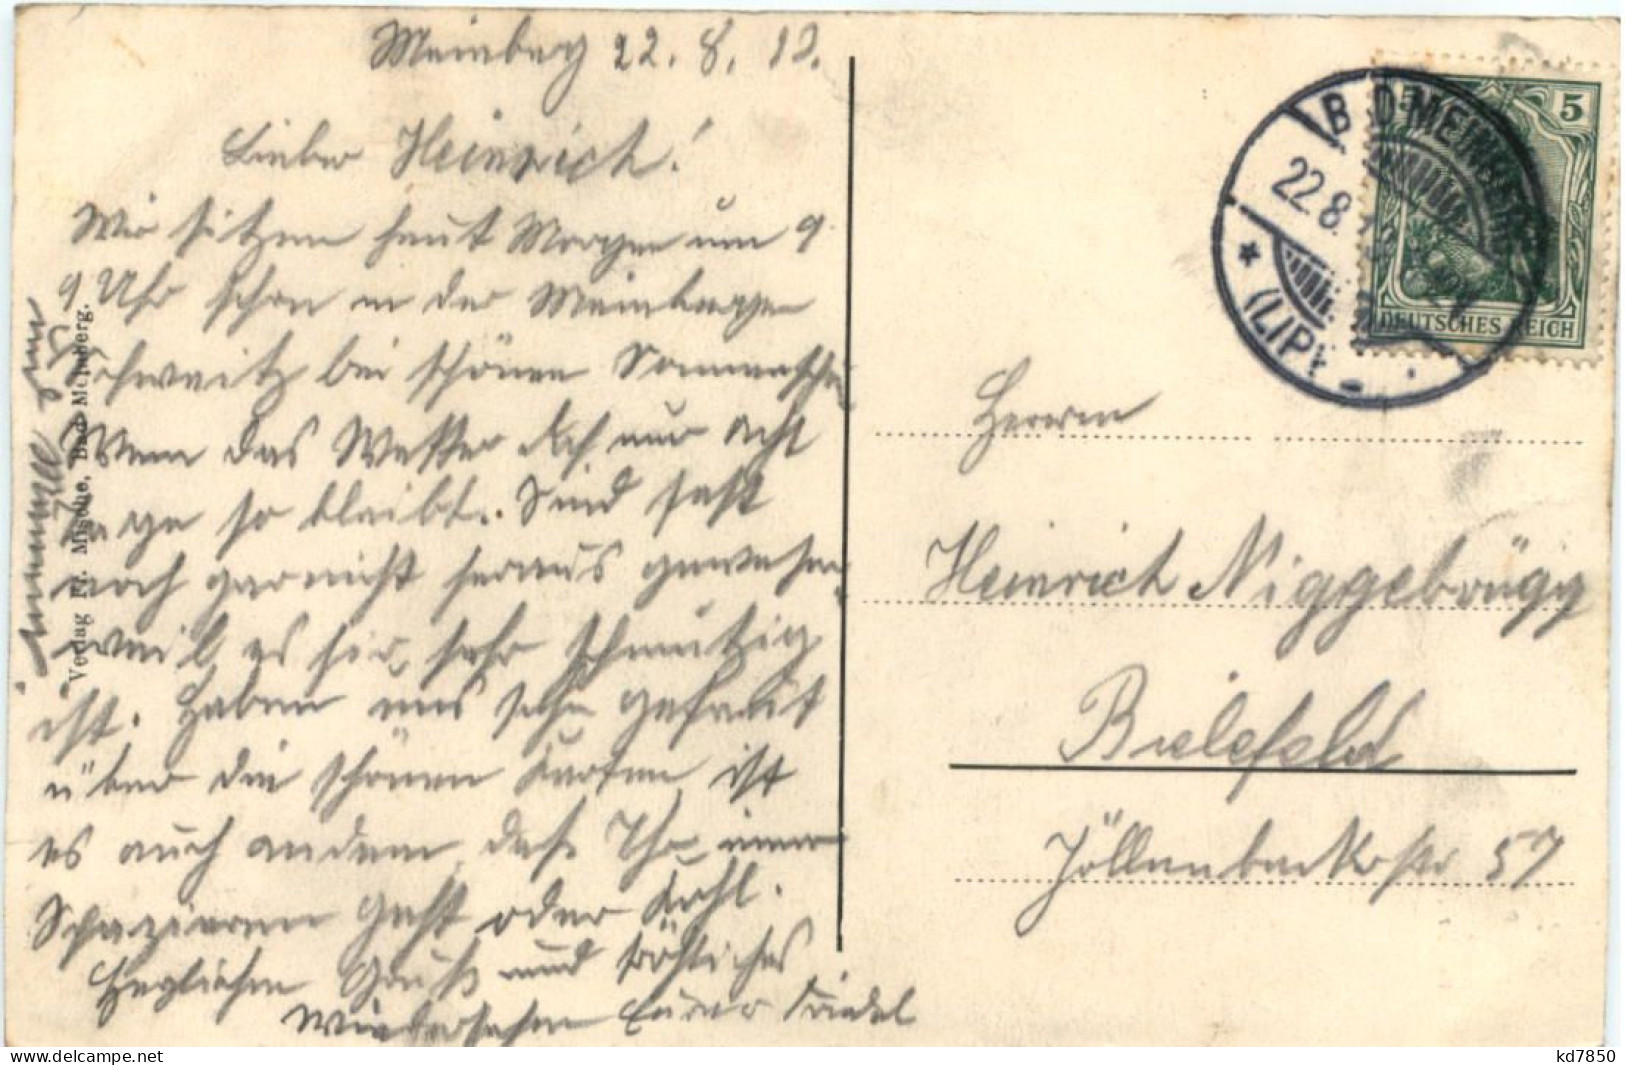 Meinberg 22. 8. 12.
Lieber Heinrich!
Wir sitzen heut Morgen um 9
9 Uhr schon in der Meinberger
Schweitz bei schönen Sonnenschein
Wenn das Wetter doch nur acht
Tage so bleibt. Sind fast
noch gar nicht heraus gewesen
weil es hier sehr schmutzig
ist. Haben uns sehr gefreut
über die schönen Karten ist
es auch andem, daß Ihr immer
Spazieren geht oder
Herzlichen Gruß und fröhliches
Wiedersehen Eurer Friedel
Verlag Fr. Mische, Bad Meinberg.
BAD MEINBERG
22.8.
(LIPPE)
5
DEUTSCHES REICH
Herrn
Heinrich Niggebrügg
Bielefeld
Jöllenbeckerstr 57
kd7850